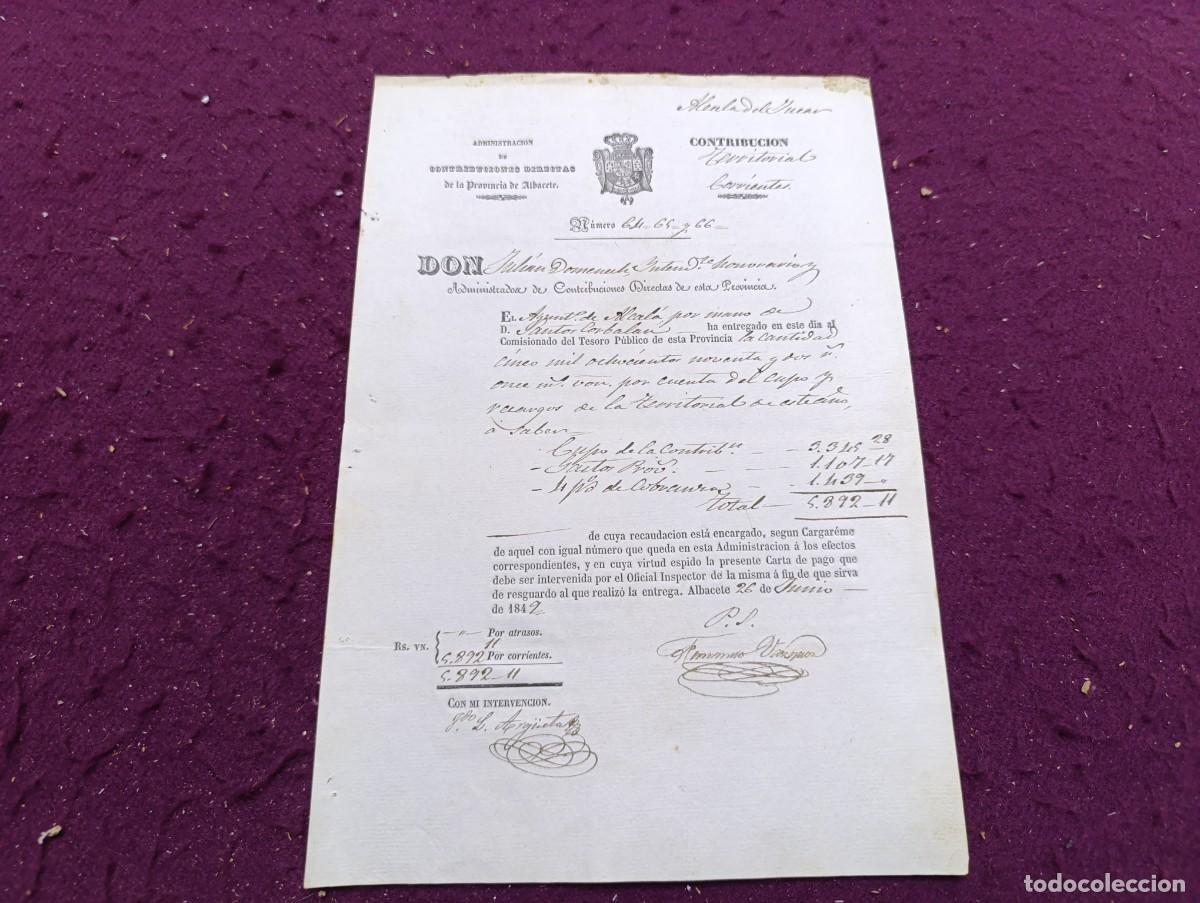 Alcala del Jucar
ADMINISTRACION
DE
CONTRIBUCIONES DIRECTAS
de la Provincia de Albacete.
CONTRIBUCION
Territorial
Corrientes.
Número 64-65-y 66-
DON Julián Domenech, Intend.te Honorario y
Administrador de Contribuciones Directas de esta Provincia.
EL Ayunt.o de Alcalá por mano de
D. Santos Corbalan ha entregado en este dia al
Comisionado del Tesoro Público de esta Provincia la cantidad
cinco mil ochocientos noventa y dos r.s
once m.s von. por cuenta del cupo y
recargos de la Territorial de este año,
á saber
Cupo de la Contrib.n - 3.345-28
- Gastos Prov.s - 1.107-17
- 4 p% de Cobranza - 1.439-"
Total - 5.892-11
de cuya recaudacion está encargado, segun Cargaréme
de aquel con igual número que queda en esta Administracion á los efectos
correspondientes, y en cuya virtud espido la presente Carta de pago que
debe ser intervenida por el Oficial Inspector de la misma á fin de que sirva
de resguardo al que realizó la entrega. Albacete 26 de Junio
de 1849
P. S.
Rs. vn. - " - Por atrasos.
5.892 11 Por corrientes.
5.892-11
Vazquez
CON MI INTERVENCION.
L. Argüeta
todocoleccion